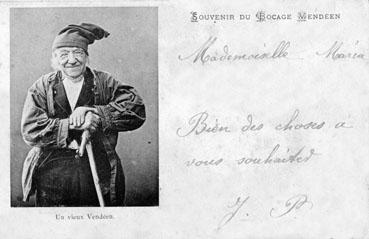 SOUVENIR DU BOCAGE VENDÉEN
Mademoiselle Maria
Bien des choses a
vous souhaiter
J. P
Un vieux Vendéen.